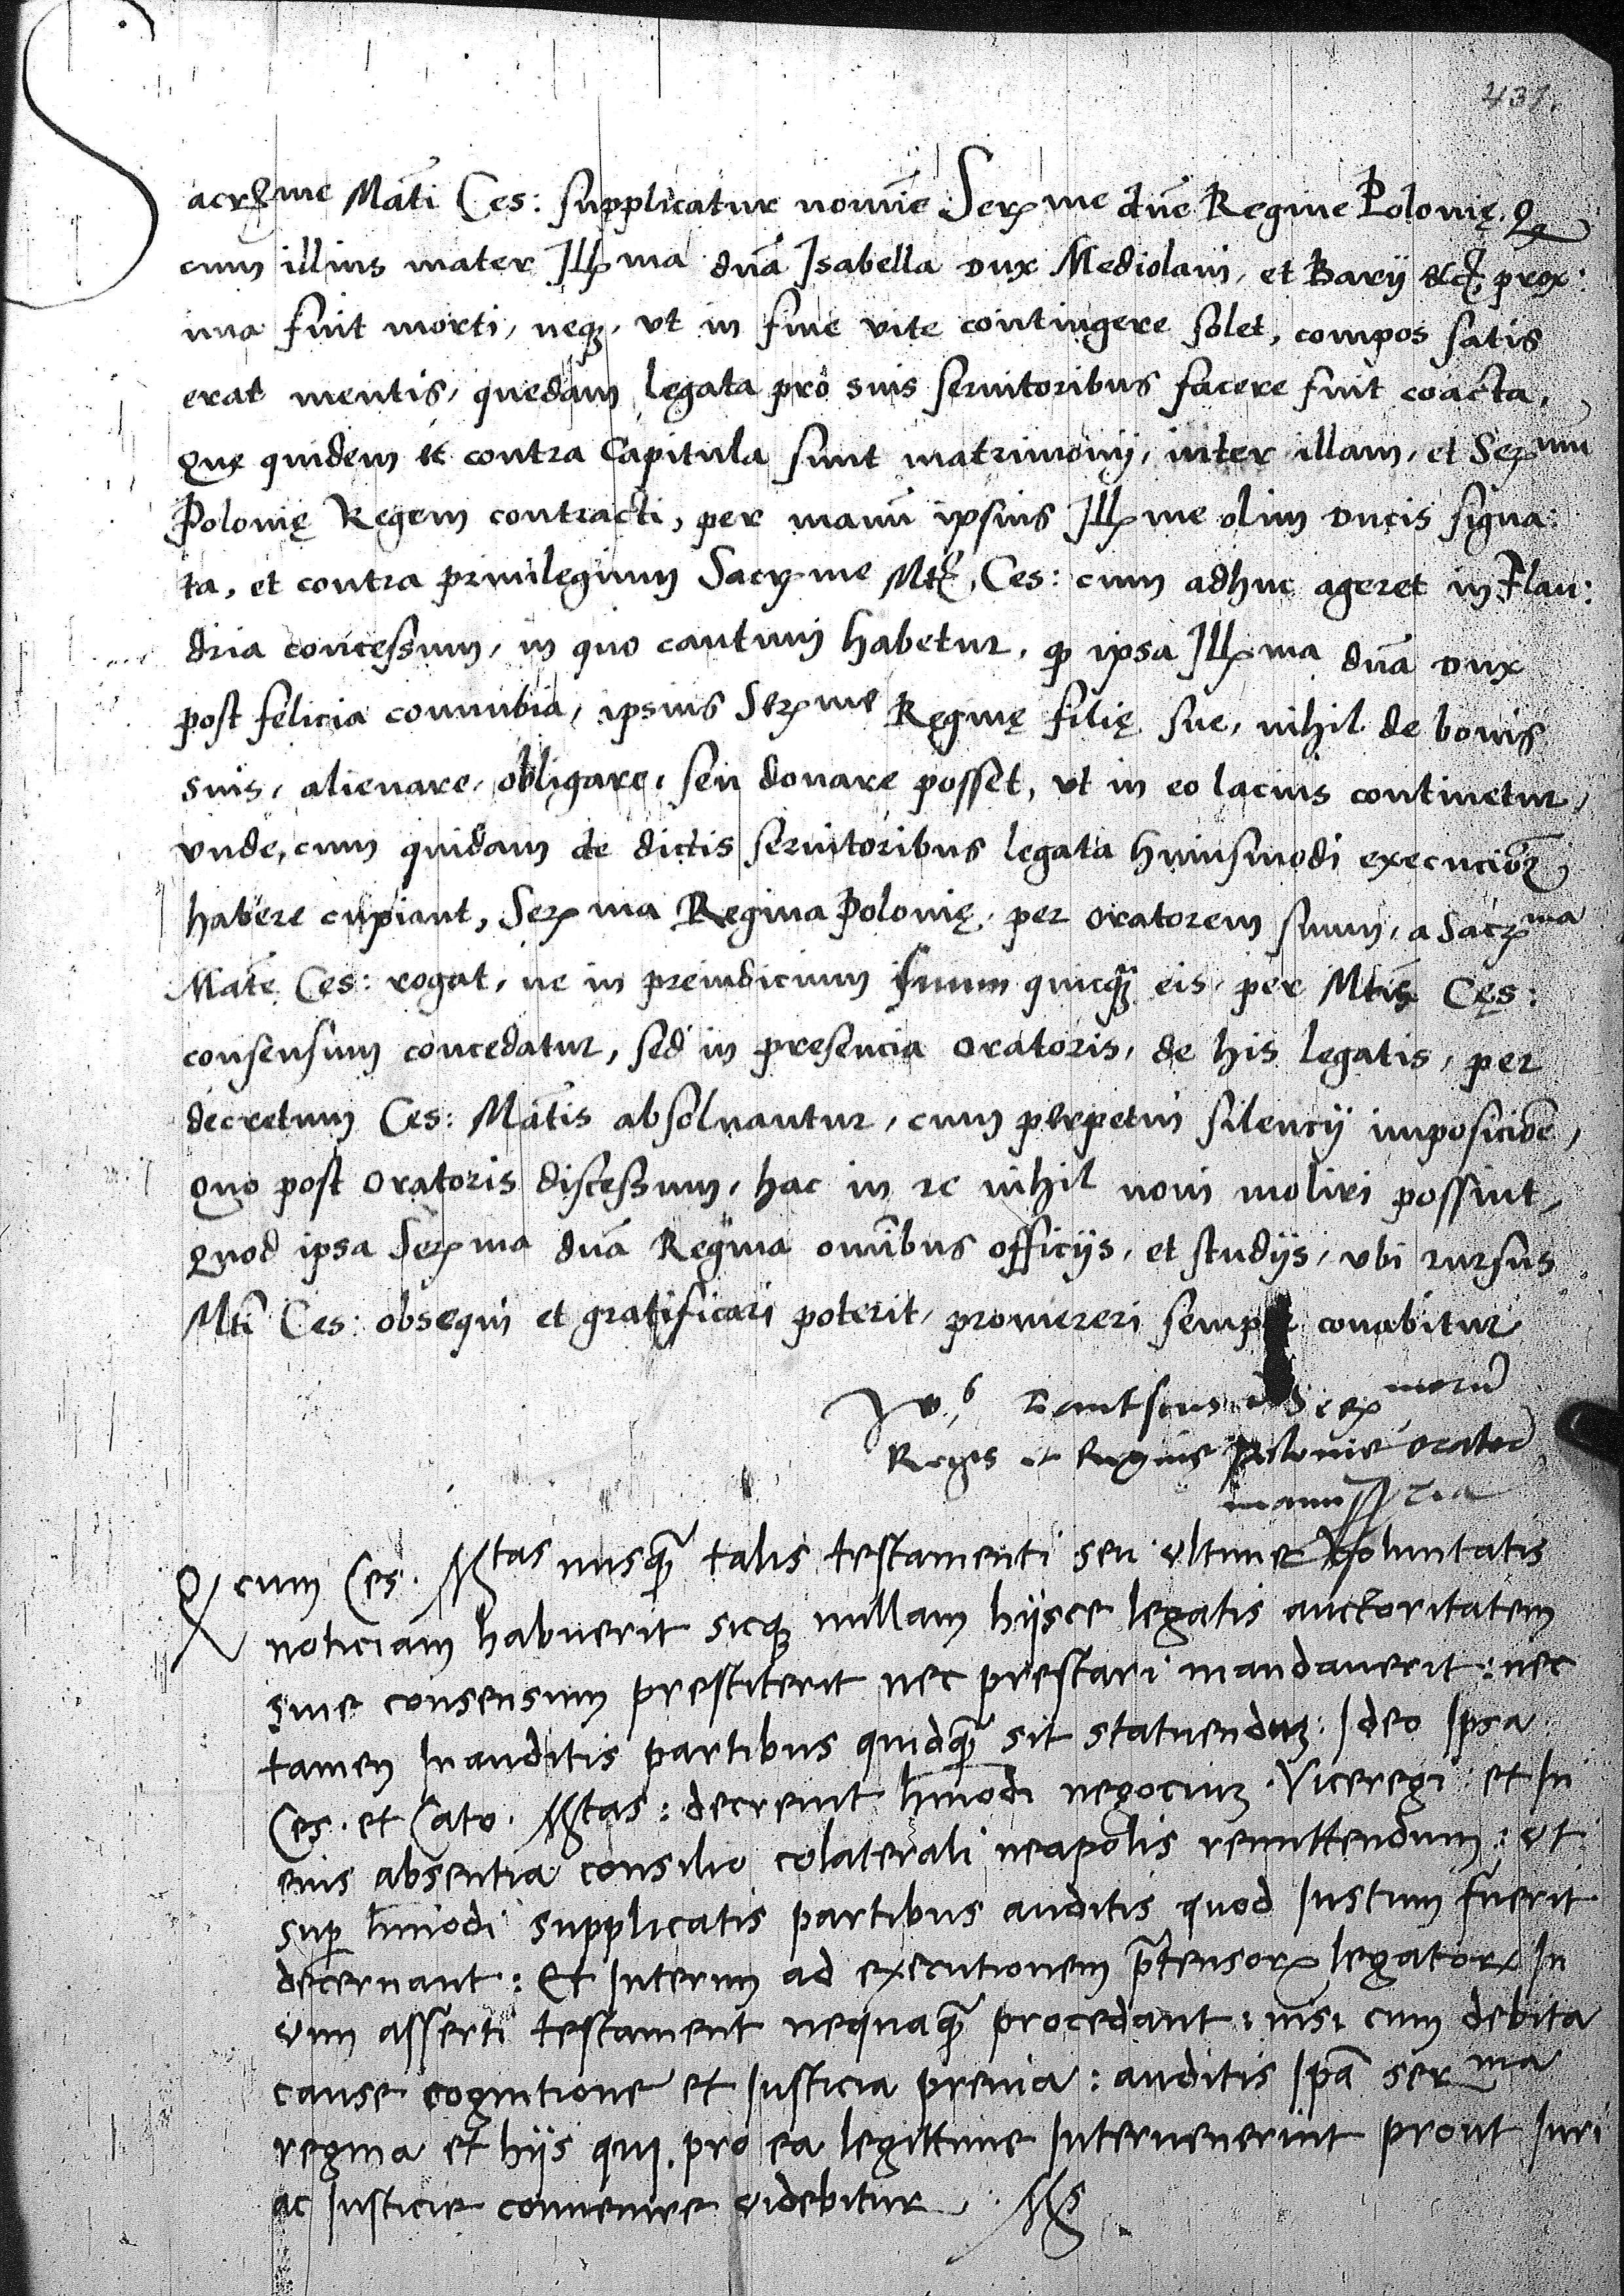 431.
Sacrme Mati Ces: supplicatur nomine Serme dne Regine Polonię. Q
cum illius mater Illma dna Isabella dux Mediolani, et Barij &c prox:
ima fuit morti, neq, vt in fine vite contingere solet, compos satis
erat mentis, quedam legata pro suis seruitoribus facere fuit coacta,
Quę quidem et contra Capitula sunt matrimonij, inter illam, et Sermu
Polonię Regem contracti, per manu ipsius Illme olim Ducis signa:
ta, et contra priuilegium Sacrme Mtis, Ces: cum adhuc ageret in Flan:
dria concessum, in quo cautum habetur, q ipsa Illma dna dux
post felicia connubia, ipsius Serme Reginę filię sue, nihil de bonis
suis, alienare, obligare, seu donare posset, vt in eo lacius continetur,
vnde, cum quidam de dictis seruitoribus legata huiusmodi execucioni
habere cupiant, Serma Regina Polonię, per oratorem suum, a Sacrma
Mate Ces: rogat, ne in preiudicium suum quicq eis, per Mtis Cęs:
consensum concedatur, sed in presencia oratoris, de his legatis, per
decretum Ces: Matis absoluantur, cum perpetui silencij imposicioe,
Quo post oratoris discessum, hac in re nihil noui moliri possint,
Quod ipsa Serma dna Regina omibus officijs, et studijs, vbi rursus
Mti Ces: obsequi et gratificari poterit, promereri semper conabitur
Jo, Dantiscus Sermorum
Regis et Regine Polonie orator
manu ppria
Q cum Ces. Mtas nusq talis testamenti seu vltime voluntatis
noticiam habuerit sicq nullam hijsce legatis auctoritatem
siue consensum prestiterit nec prestari mandauerit: nec
tamen Inauditis partibus quidq sit statuenduz: Ideo Ipsa
Ces. et Cato. Mtas: decreuit hmodi negociuz. Viceregi: et In
eius absentia consilio colaterali neapolis remittendum: vt
sup hmodi supplicatis partibus auditis quod Iustum fuerit
decernant: Et Interim ad executionem ptensor legator In
vim asserti testament nequaq procedant: nisi cum debita
cause cognitione et Iusticia preuia: auditis Ipa serma
regina et hijs qui pro ea legittime Interuenerint prout Iuri
ac Iusticie conuenire videbitur